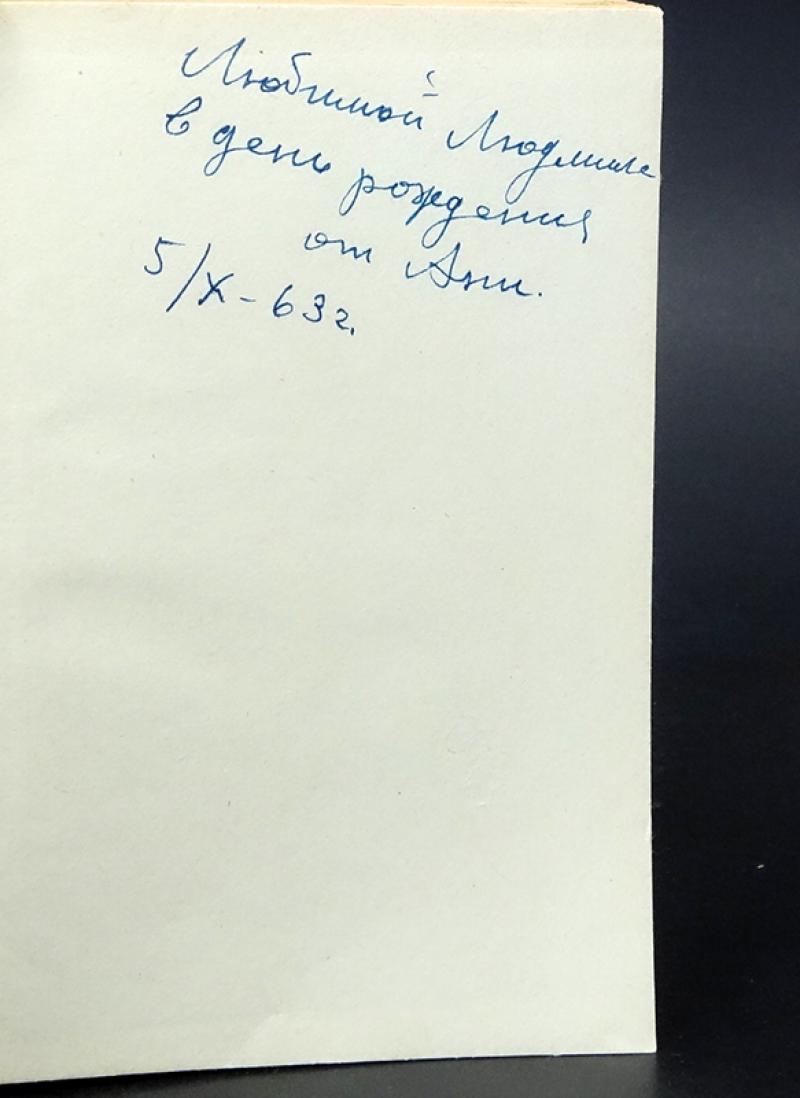 Любимой Людмиле
в день рождения
от Ани.
5/X - 63 г.